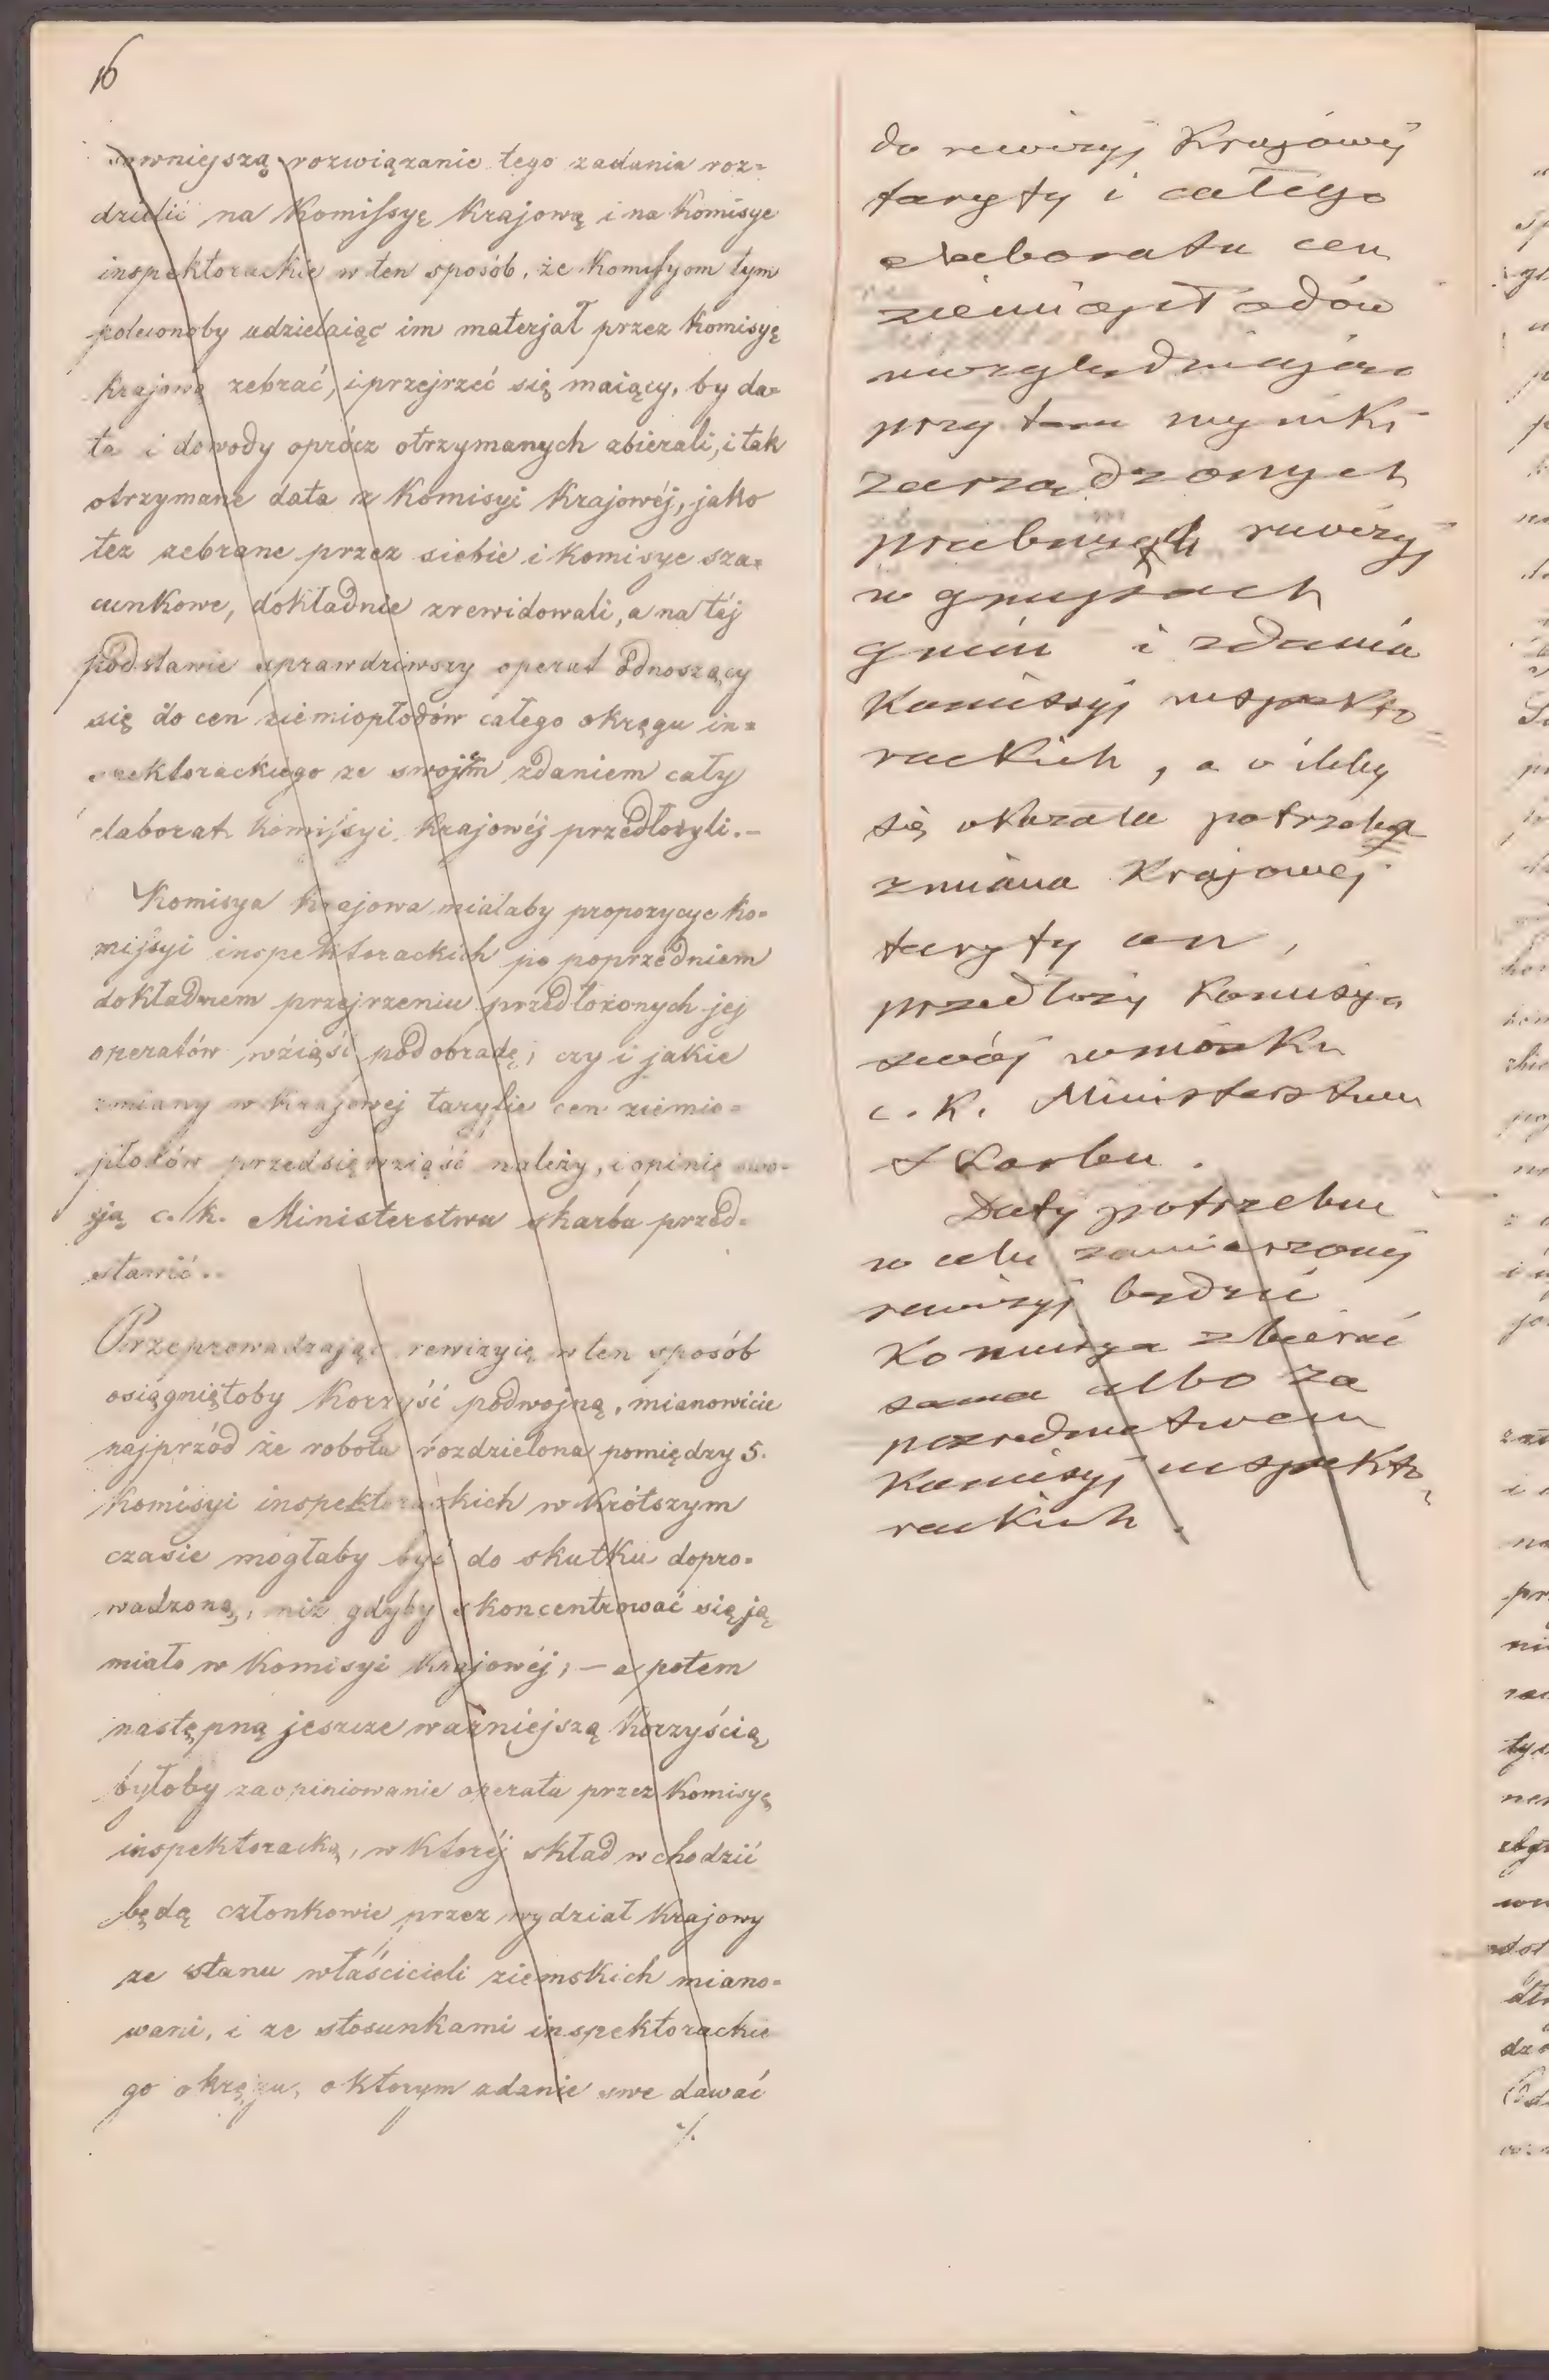 16
sowniejszą rozwiązanie tego zadania roz=
dzielić na Komissyę Krajową i na Komisye
inspektorackie w ten sposób, że Komissyom tym
polecionoby udzielaiąc im materjał przez Komisyę
Krajową zebrać, i przejrzeć się maiący, by da=
ta i dowody oprócz otrzymanych zbierali, i tak
otrzymane data z Komisyi Krajowéj, jako
też zebrane przez siebie i Komisye sza=
cunkowe, dokładnie zrewidowali, a na téj
podstawie sprawdziwszy operat odnoszący
się do cen ziemiopłodów całego okręgu in=
spektorackiego ze swojem zdaniem cały
elaborat Komissyi Krajowéj przedłożyli.–
Komisya Krajowa miałaby propozycye Ko=
missyi inspektorackich po poprzedniem
dokładnem przejrzeniu przedłożonych jej
operatów wziąść pod obradę, czy i jakie
zmiany w Krajowej taryfie cen ziemio=
płodów przedsięwziąść należy, i opinię swo=
ją c. k. Ministerstwu skarbu przed=
stawić.
Przeprowadzając rewizyię w ten sposób
osiągniętoby Korzyść podwojną, mianowicie
najprzód że robota rozdzielona pomiędzy 5.
Komisyi inspektorackich w Krótszym
czasie mogłaby być do skutku dopro=
wadzoną, niż gdyby skoncentrować się ją
miało w Komisyi Krajowéj; – a potem
następną jeszcze ważniejszą Korzyścią
byłoby zaopiniowanie operatu przez Komisyę
inspektoracką, w Któréj skład wchodzić
będą członkowie przez wydział Krajowy
ze stanu właścicieli ziemskich miano=
wani, i ze stosunkami inspektorackie
go okręgu, o ktorym zdanie swe dawać
./.
do rewizyj Krajowej
taryfy i całego
elaboratu cen
ziemiopłodów
uwzględniając
przy tem wyniki
zarządzonych
próbnych rewizyj
w grupach
gmin i zdania
Komissyj inspekto
rackich, a o ileby
się okazała potrzeba
zmiana Krajowej
taryfy cen,
przedłoży Komisya
swój wniosek
c. K. Ministerstwu
Skarbu.
Daty potrzebne
w celu zamierzonej
rewizyj będzie
Komisya zbierać
sama albo za
pośrednictwem
Komisyj inspekto
rackich.